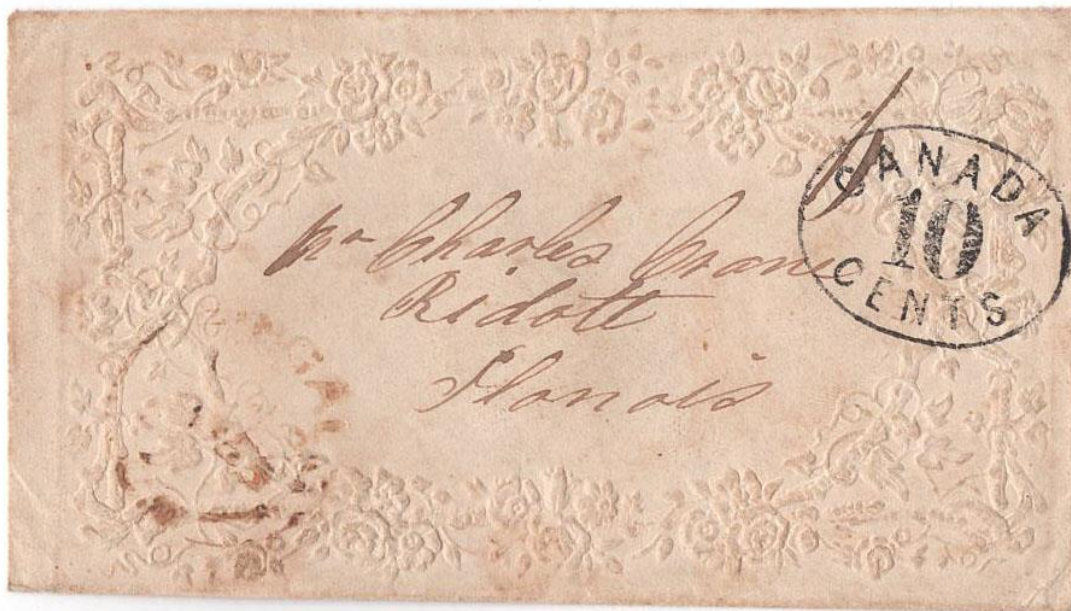 CANADA
10
CENTS
Mr Charles Crane
Ridott
Ilanois